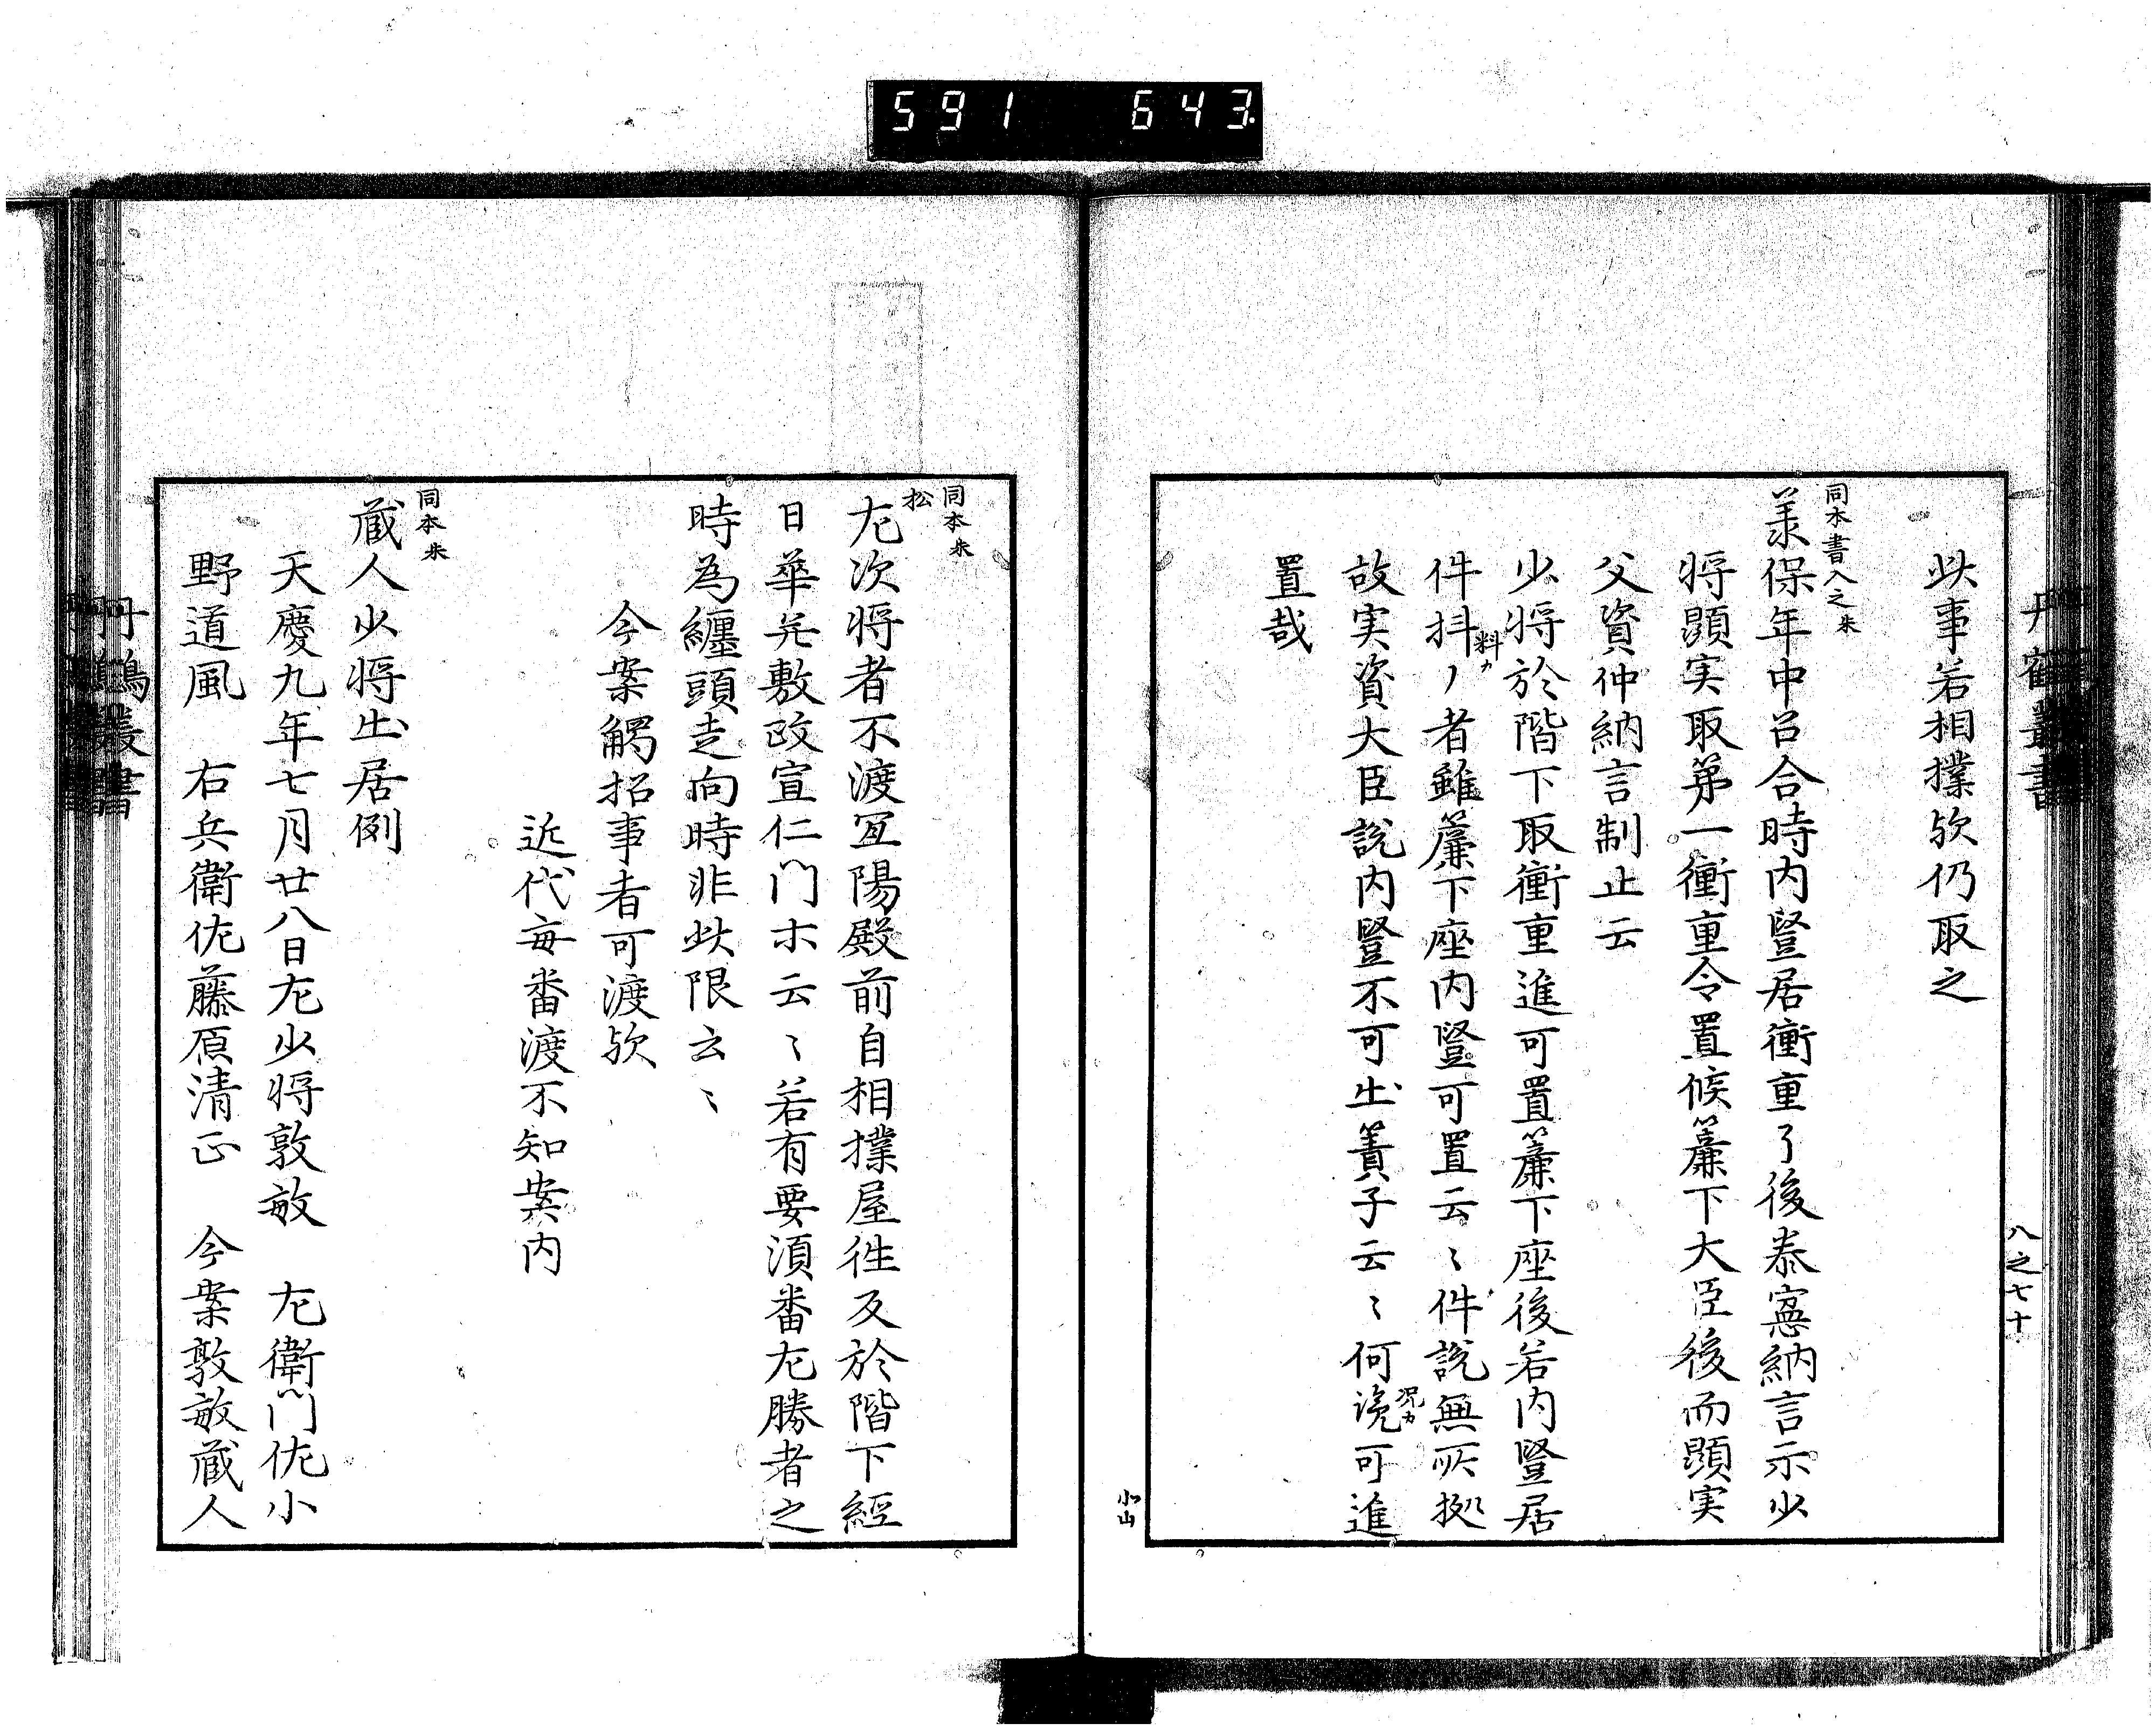 591 643
丹鶴叢書
八之七十
此事若相撲欤仍取之
同本書入之朱
羕保年中召合時内豎居衝重了後泰憲納言示少
将顕実取第一衝重令置候簾下大臣後而顕実
父資仲納言制止云
少将於階下取衝重進可置簾下座後若内豎居
件抖ノ者雖簾下座内豎可置云〻件説無所拠
料カ
故実資大臣説内豎不可出簀子云〻何㳂可進
况カ
置哉
小山
同本朱
松
左次将者不渡冝陽殿前自相撲屋徃反於階下經
日華并敷政宣仁門ホ云〻若有要湏番左勝者之
時為纏頭走向時非此限云〻
今案觸招事者可渡欤
近代毎番渡不知案内
同本朱
蔵人少将出居例
天慶九年七月廿八日左少将敦敏　左衛門佐小
野道風　右兵衛佐藤原清正　今案敦敏蔵人
丹鶴叢書